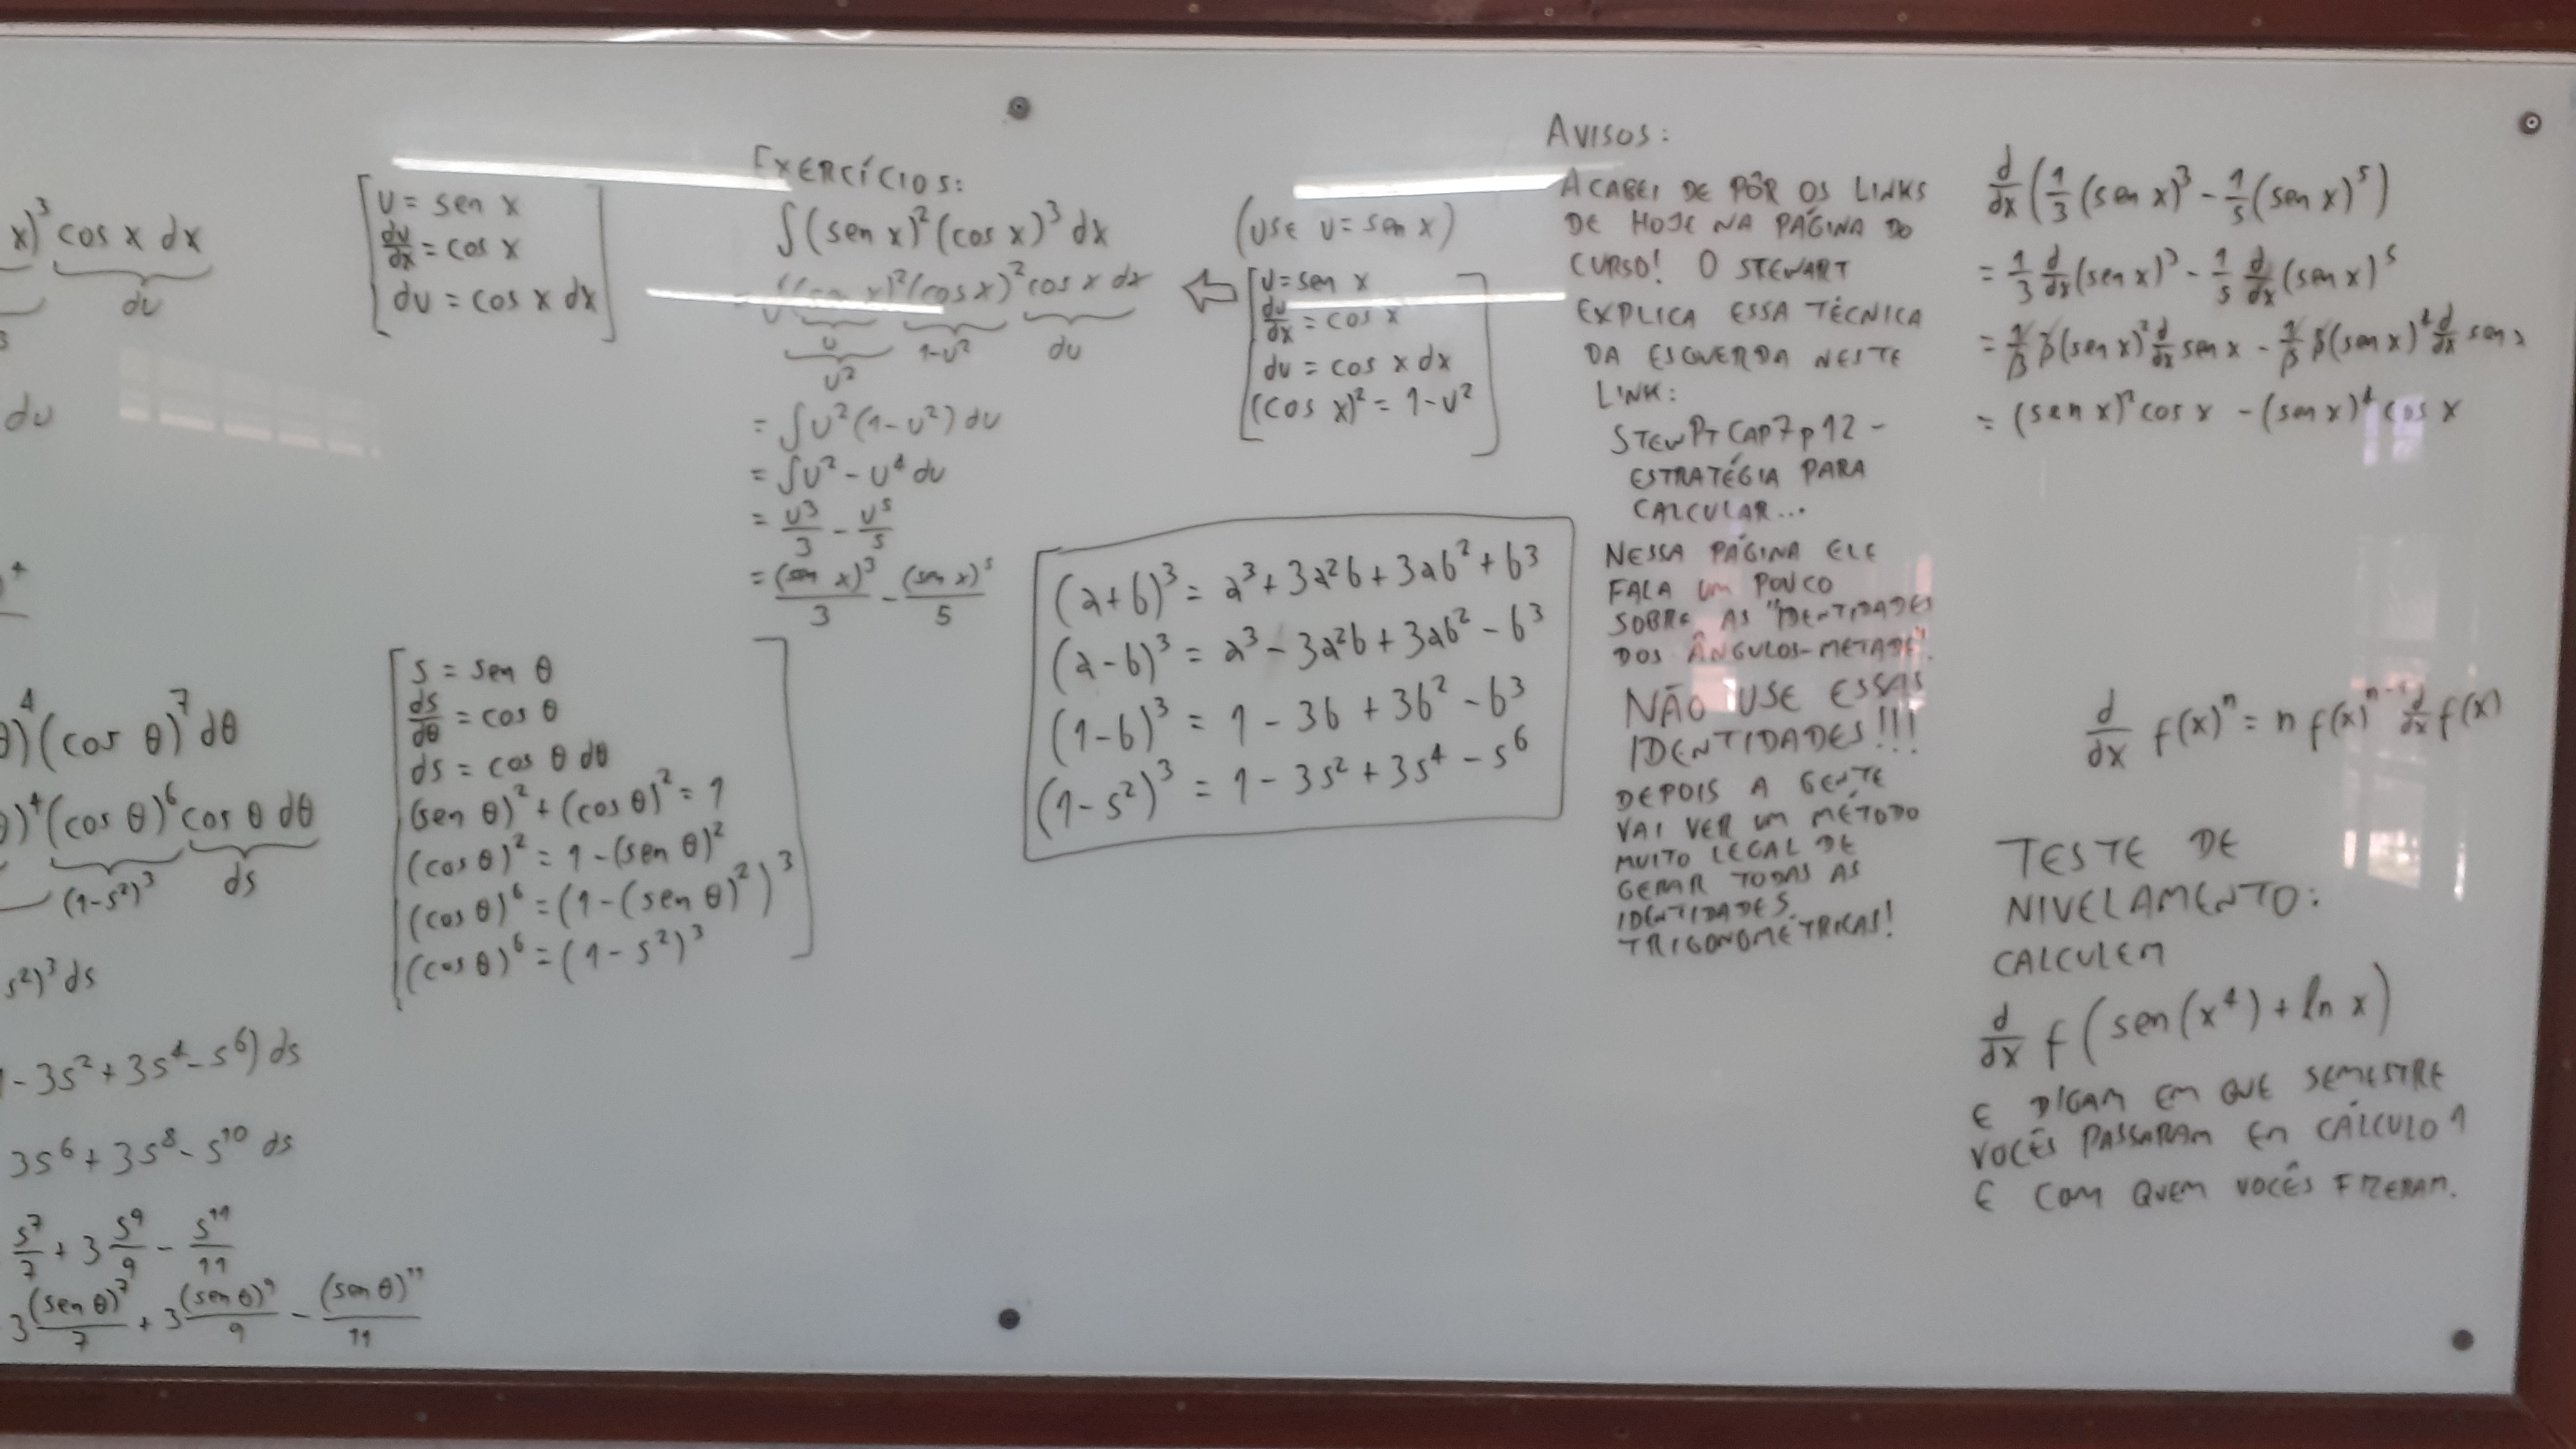 x)³ cos x dx
du
3
du
4
)⁴ (cos θ)⁷ dθ
)⁴ (cos θ)⁶ cos θ dθ
(1-s²)³ ds
s²)³ ds
- 3s² + 3s⁴ - s⁶) ds
3s⁶ + 3s⁸ - s¹⁰ ds
s⁷/7 + 3 s⁹/9 - s¹¹/11
3 (sen θ)⁷/7 + 3 (sen θ)⁹/9 - (sen θ)¹¹/11
[u = sen x
du/dx = cos x
du = cos x dx]
[s = sen θ
ds/dθ = cos θ
ds = cos θ dθ
(sen θ)² + (cos θ)² = 1
(cos θ)² = 1 - (sen θ)²
(cos θ)⁶ = (1 - (sen θ)²)³
(cos θ)⁶ = (1 - s²)³]
EXERCÍCIOS:
∫(sen x)² (cos x)³ dx
= ∫(sen x)² (cos x)² cos x dx
u 1-u² du
u²
= ∫u² (1-u²) du
= ∫u² - u⁴ du
= u³/3 - u⁵/5
= (sen x)³/3 - (sen x)⁵/5
(USE u = sen x)
⇦ [u = sen x
du/dx = cos x
du = cos x dx
(cos x)² = 1-u²]
(a+b)³ = a³ + 3a²b + 3ab² + b³
(a-b)³ = a³ - 3a²b + 3ab² - b³
(1-b)³ = 1 - 3b + 3b² - b³
(1-s²)³ = 1 - 3s² + 3s⁴ - s⁶
AVISOS:
ACABEI DE PÔR OS LINKS
DE HOJE NA PÁGINA DO
CURSO! O STEWART
EXPLICA ESSA TÉCNICA
DA ESQUERDA NESTE
LINK:
STEWPTCAP7P12 -
ESTRATÉGIA PARA
CALCULAR...
NESSA PÁGINA ELE
FALA UM POUCO
SOBRE AS "IDENTIDADES
DOS ÂNGULOS-METADE".
NÃO USE ESSAS
IDENTIDADES!!!
DEPOIS A GENTE
VAI VER UM MÉTODO
MUITO LEGAL DE
GERAR TODAS AS
IDENTIDADES
TRIGONOMÉTRICAS!
d/dx (1/3 (sen x)³ - 1/5 (sen x)⁵)
= 1/3 d/dx (sen x)³ - 1/5 d/dx (sen x)⁵
= 1/3 3 (sen x)² d/dx sen x - 1/5 5 (sen x)⁴ d/dx sen x
= (sen x)² cos x - (sen x)⁴ cos x
d/dx f(x)ⁿ = n f(x)ⁿ⁻¹ d/dx f(x)
TESTE DE
NIVELAMENTO:
CALCULEM
d/dx f(sen(x⁴) + ln x)
E DIGAM EM QUE SEMESTRE
VOCÊS PASSARAM EM CÁLCULO 1
E COM QUEM VOCÊS FIZERAM.